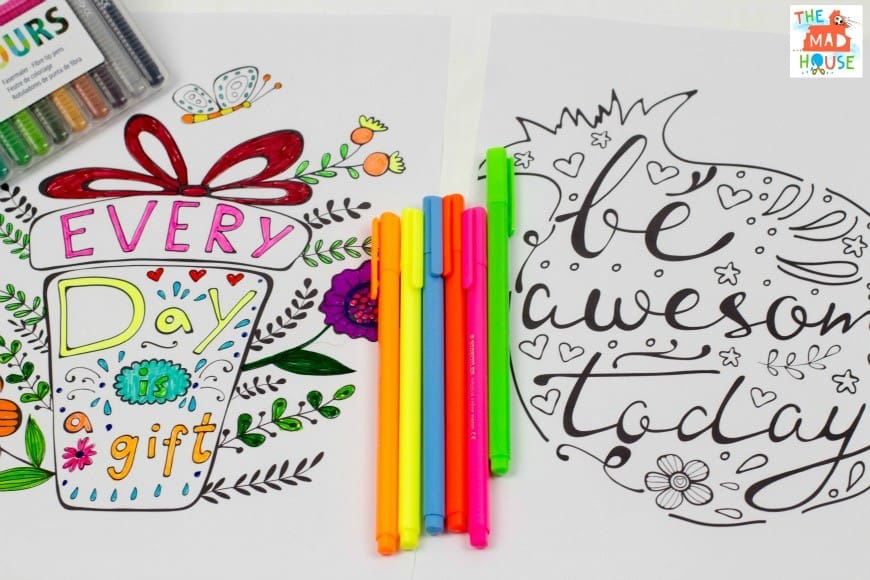 OURS
Fasermaler · Fibre tip pens
Feutre de coloriage
Rotuladores de punta de fibra
THE
MAD
HOUSE
EVERY
Day
is
a
gift
be
awesom
today